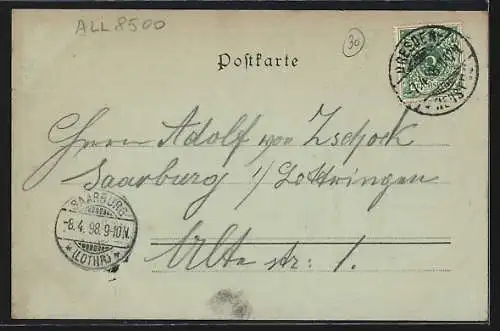 ALL 8500
30
Postkarte
DRESDEN
Herrn Adolf von Zschock
Saarburg i/Lothringen
SAARBURG
-8.4.98. 9-10N.
* (LOTHR) *
Alte str: 1.